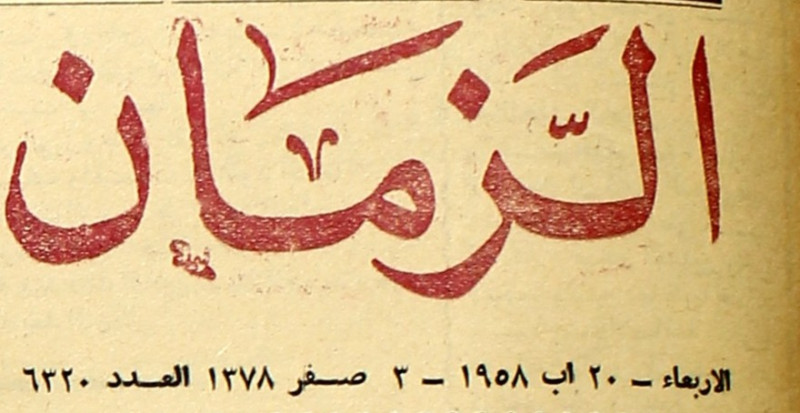 الزّمان
الاربعاء – ٢٠ اب ١٩٥٨ – ٣ صفر ١٣٧٨ العدد ٦٣٢٠